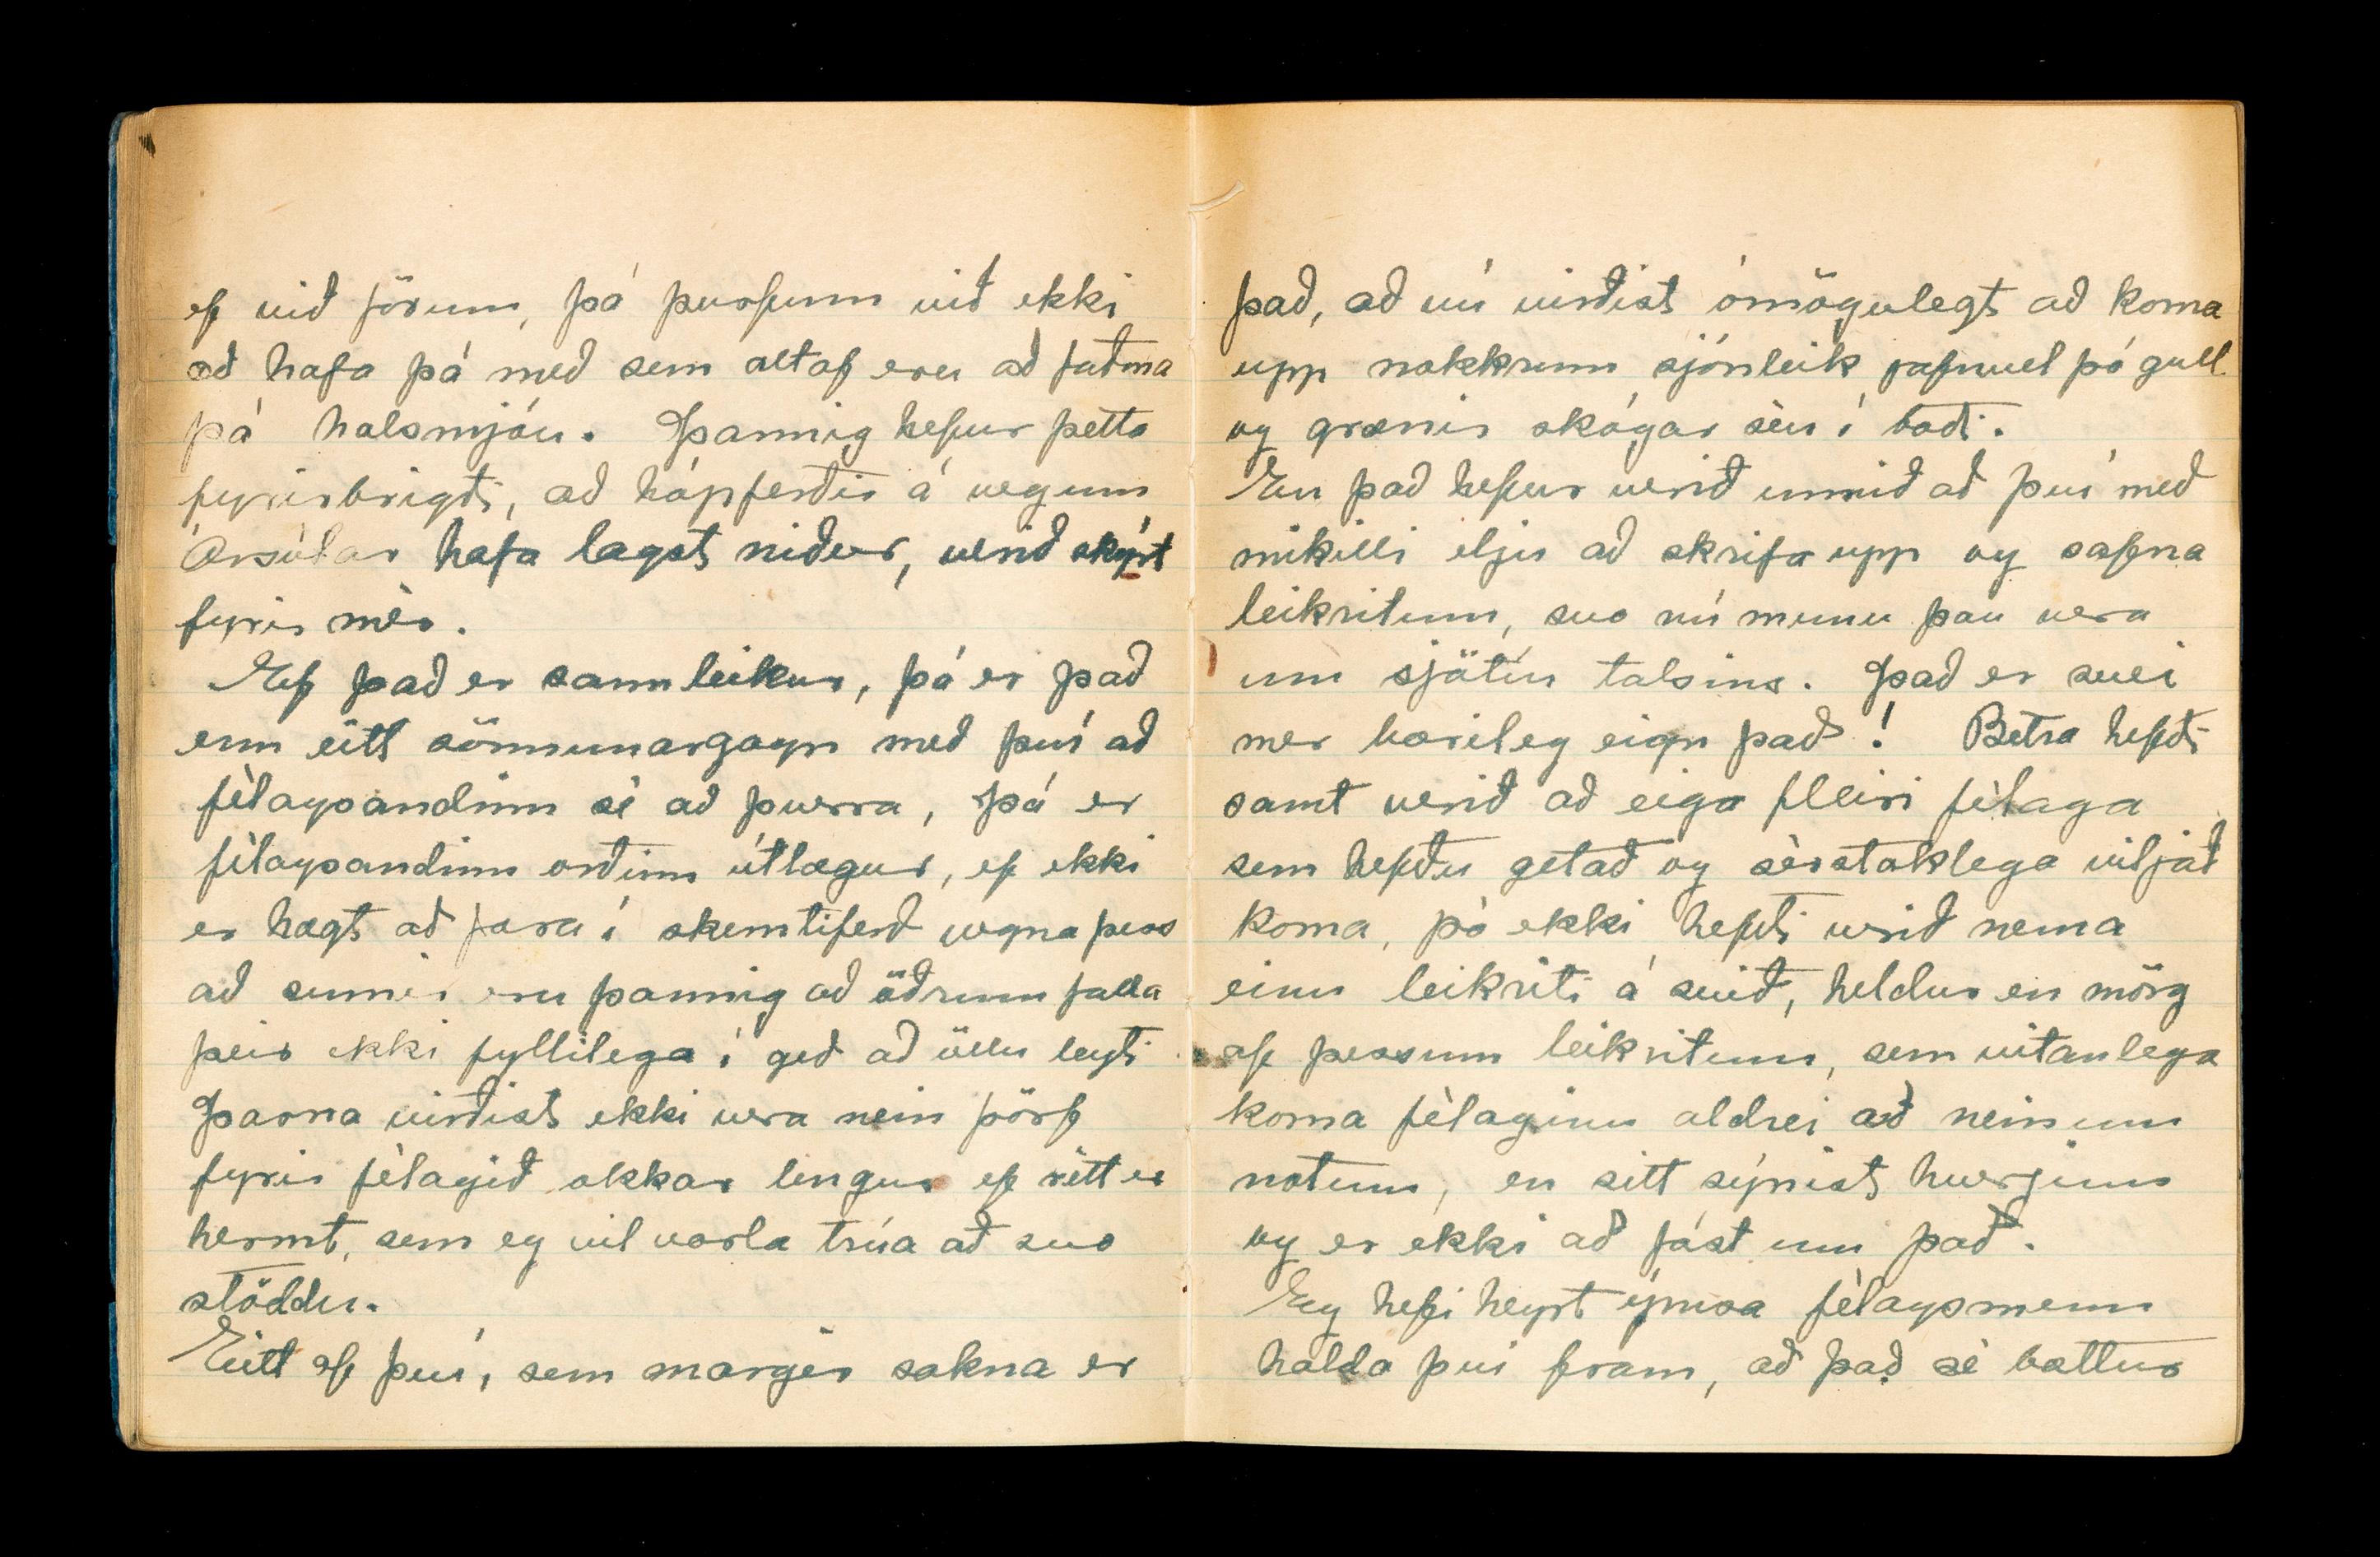 ef við förum, þá þurfum við ekki
að hafa þá með sem altaf eru að faðma
þá halsmjóu. Þannig hefur þetta
fyrirbrigði, að hópferðir á vegum
Ársólar hafa lagst niður, verið skýrt
fyrir mèr.
Ef það er sannleikur, þá er það
enn eitt sönnunargagn með því að
fèlagsandinn sè að þverra, þá er
fèlagsandinn orðinn útlægur, ef ekki
er hægt að fara í skemtiferð vegna þess
að sumir eru þannig að öðrum falla
þeir ekki fyllilega í geð að öllu leyti
Þarna virðist ekki vera nein þörf
fyrir fèlagið okkar lengur ef rètt er
hermt, sem eg vil varla trúa að svo
stöddu.
Eitt af því, sem margir sakna er
það, að nú virðist ómögulegt að koma
upp nokkrum sjónleik jafnvel þó gull
og grænir skógar sèu í boði.
En það hefur verið unnið að því með
mikilli elju að skrifa upp og safna
leikritum, svo nú munu þau vera
um sjötíu talsins. Það er svei
mer bærileg eign það! Betra hefði
samt verið að eiga fleiri fèlaga
sem hefðu getað og sèrstaklega viljað
koma, þó ekki hefði verið nema
einu leikriti á svið, heldur en mörg
af þessum leikritum, sem vitanlega
koma fèlaginu aldrei að neinum
notum, en sitt sýnist hverjum
og er ekki að fást um það.
Eg hefi heyrt ýmsa fèlagsmenn
halda því fram, að það sè bættur